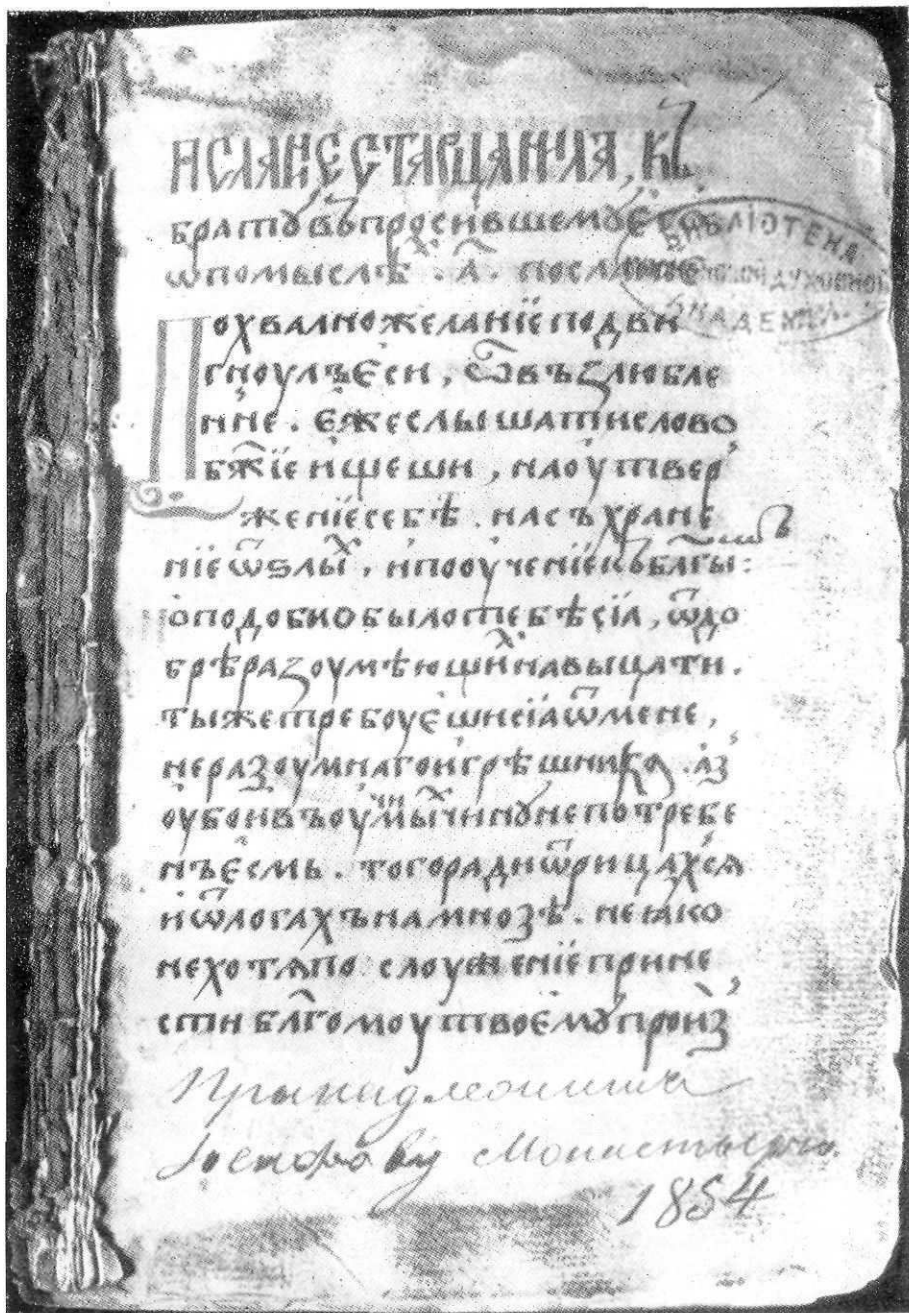 ПСЛАНЇЕ СТАРЦА НИЛА, КЪ
братꙋ въпросившемꙋ єго
ѡ помыслѣⷯ . а҃ . посланїе
БИБЛІОТЕКА ДУХОВНОЙ АКАДЕМІИ
Похвално желанїе подви
гноулъ єси, ѿ възлюбле
нне . єже слышати слово
бж҃їе ищеши, на оутвер
женїе себѣ . на съхране
нїе ѿ ѕлыⷯ, и пооученїе къ бл҃гыⷨ :
Оподобно было тебѣ сїа, ѿ до
брѣ разоумѣющиⷯ навыцати .
ты же требоуєши сїа ѿ мене,
неразоумнаго и грѣшника . аз
оубо и въ оуⷱмыⷯ чинꙋ непотребе
нъ єсмь . того ради ѿрицахсѧ
и ѿлогахъ на мнозѣ . не ꙗко
не хотѧ послоуженїе прине
сти бл҃гомоу твоємꙋ произ
Принадлежитъ
Іосифову Монастырю.
1854